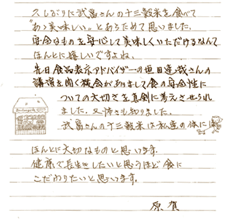 久しぶりに武富さんの十三穀米を食べて
"あゝ美味しい。"とあらためて思いました。
安全なものを安心して美味しくいただけるなんて
ほんとに嬉しいですね。
先日食品表示アドバイザーの垣田達哉さんの
講演を聞く機会がありまして食の安全性に
ついての大切さを真剣に考えさせられ
ました。
武富さんの十三穀米は私達の体に
ほんとに大切なものと思います。
健康で長生きしたいと思うほど食に
こだわりたいと思います。
原 賀